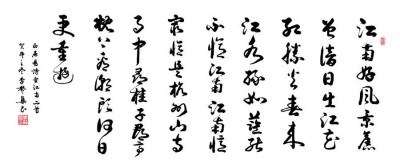 江南好风景旧
曾谙日出江花
红胜火春来
江水绿如蓝能
不忆江南江南忆
最忆是杭州山寺
月中寻桂子郡亭
枕上看潮头何日
更重游
白居易诗忆江南二首